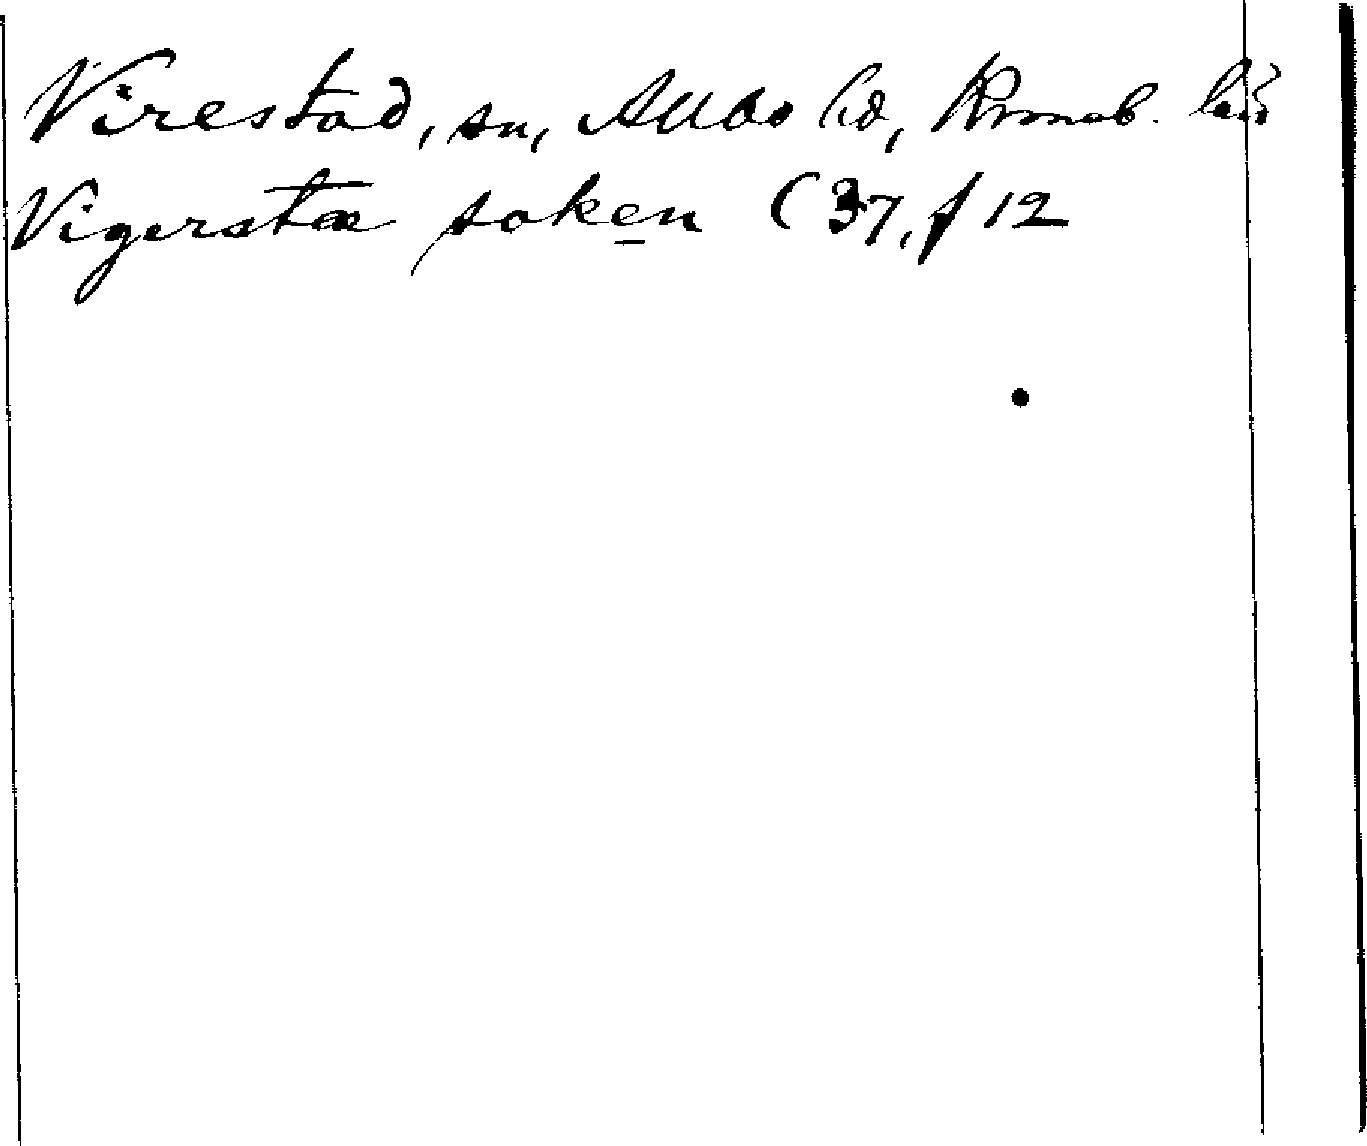 Virestad, sn, Allbo hd, Kronob. län
Vigerstæ soken C 37, f 12